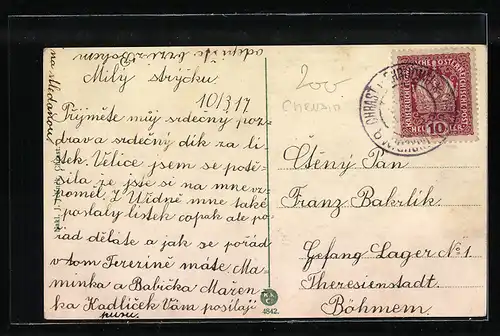 Milý strýčku.
10/3 17
Přijměte můj srdečný poz-
drav a srdečný dík za lí-
stek. Velice jsem se potě-
šila že jste si na mne vz-
pomněl. Z Vídně mne také
poslaly lístek copak ale po-
řád děláte a jak se pořád
v tom Terezíně máte Ma-
minka a Babička Mařen-
ka Kadlíček Vám posílají
pusu.
na shledanou
200
Chrudim
10 HELLER
Ctěný Pan
Franz Bakrlík
Gefang Lager No 1.
Theresienstadt.
Böhmem.
4842.